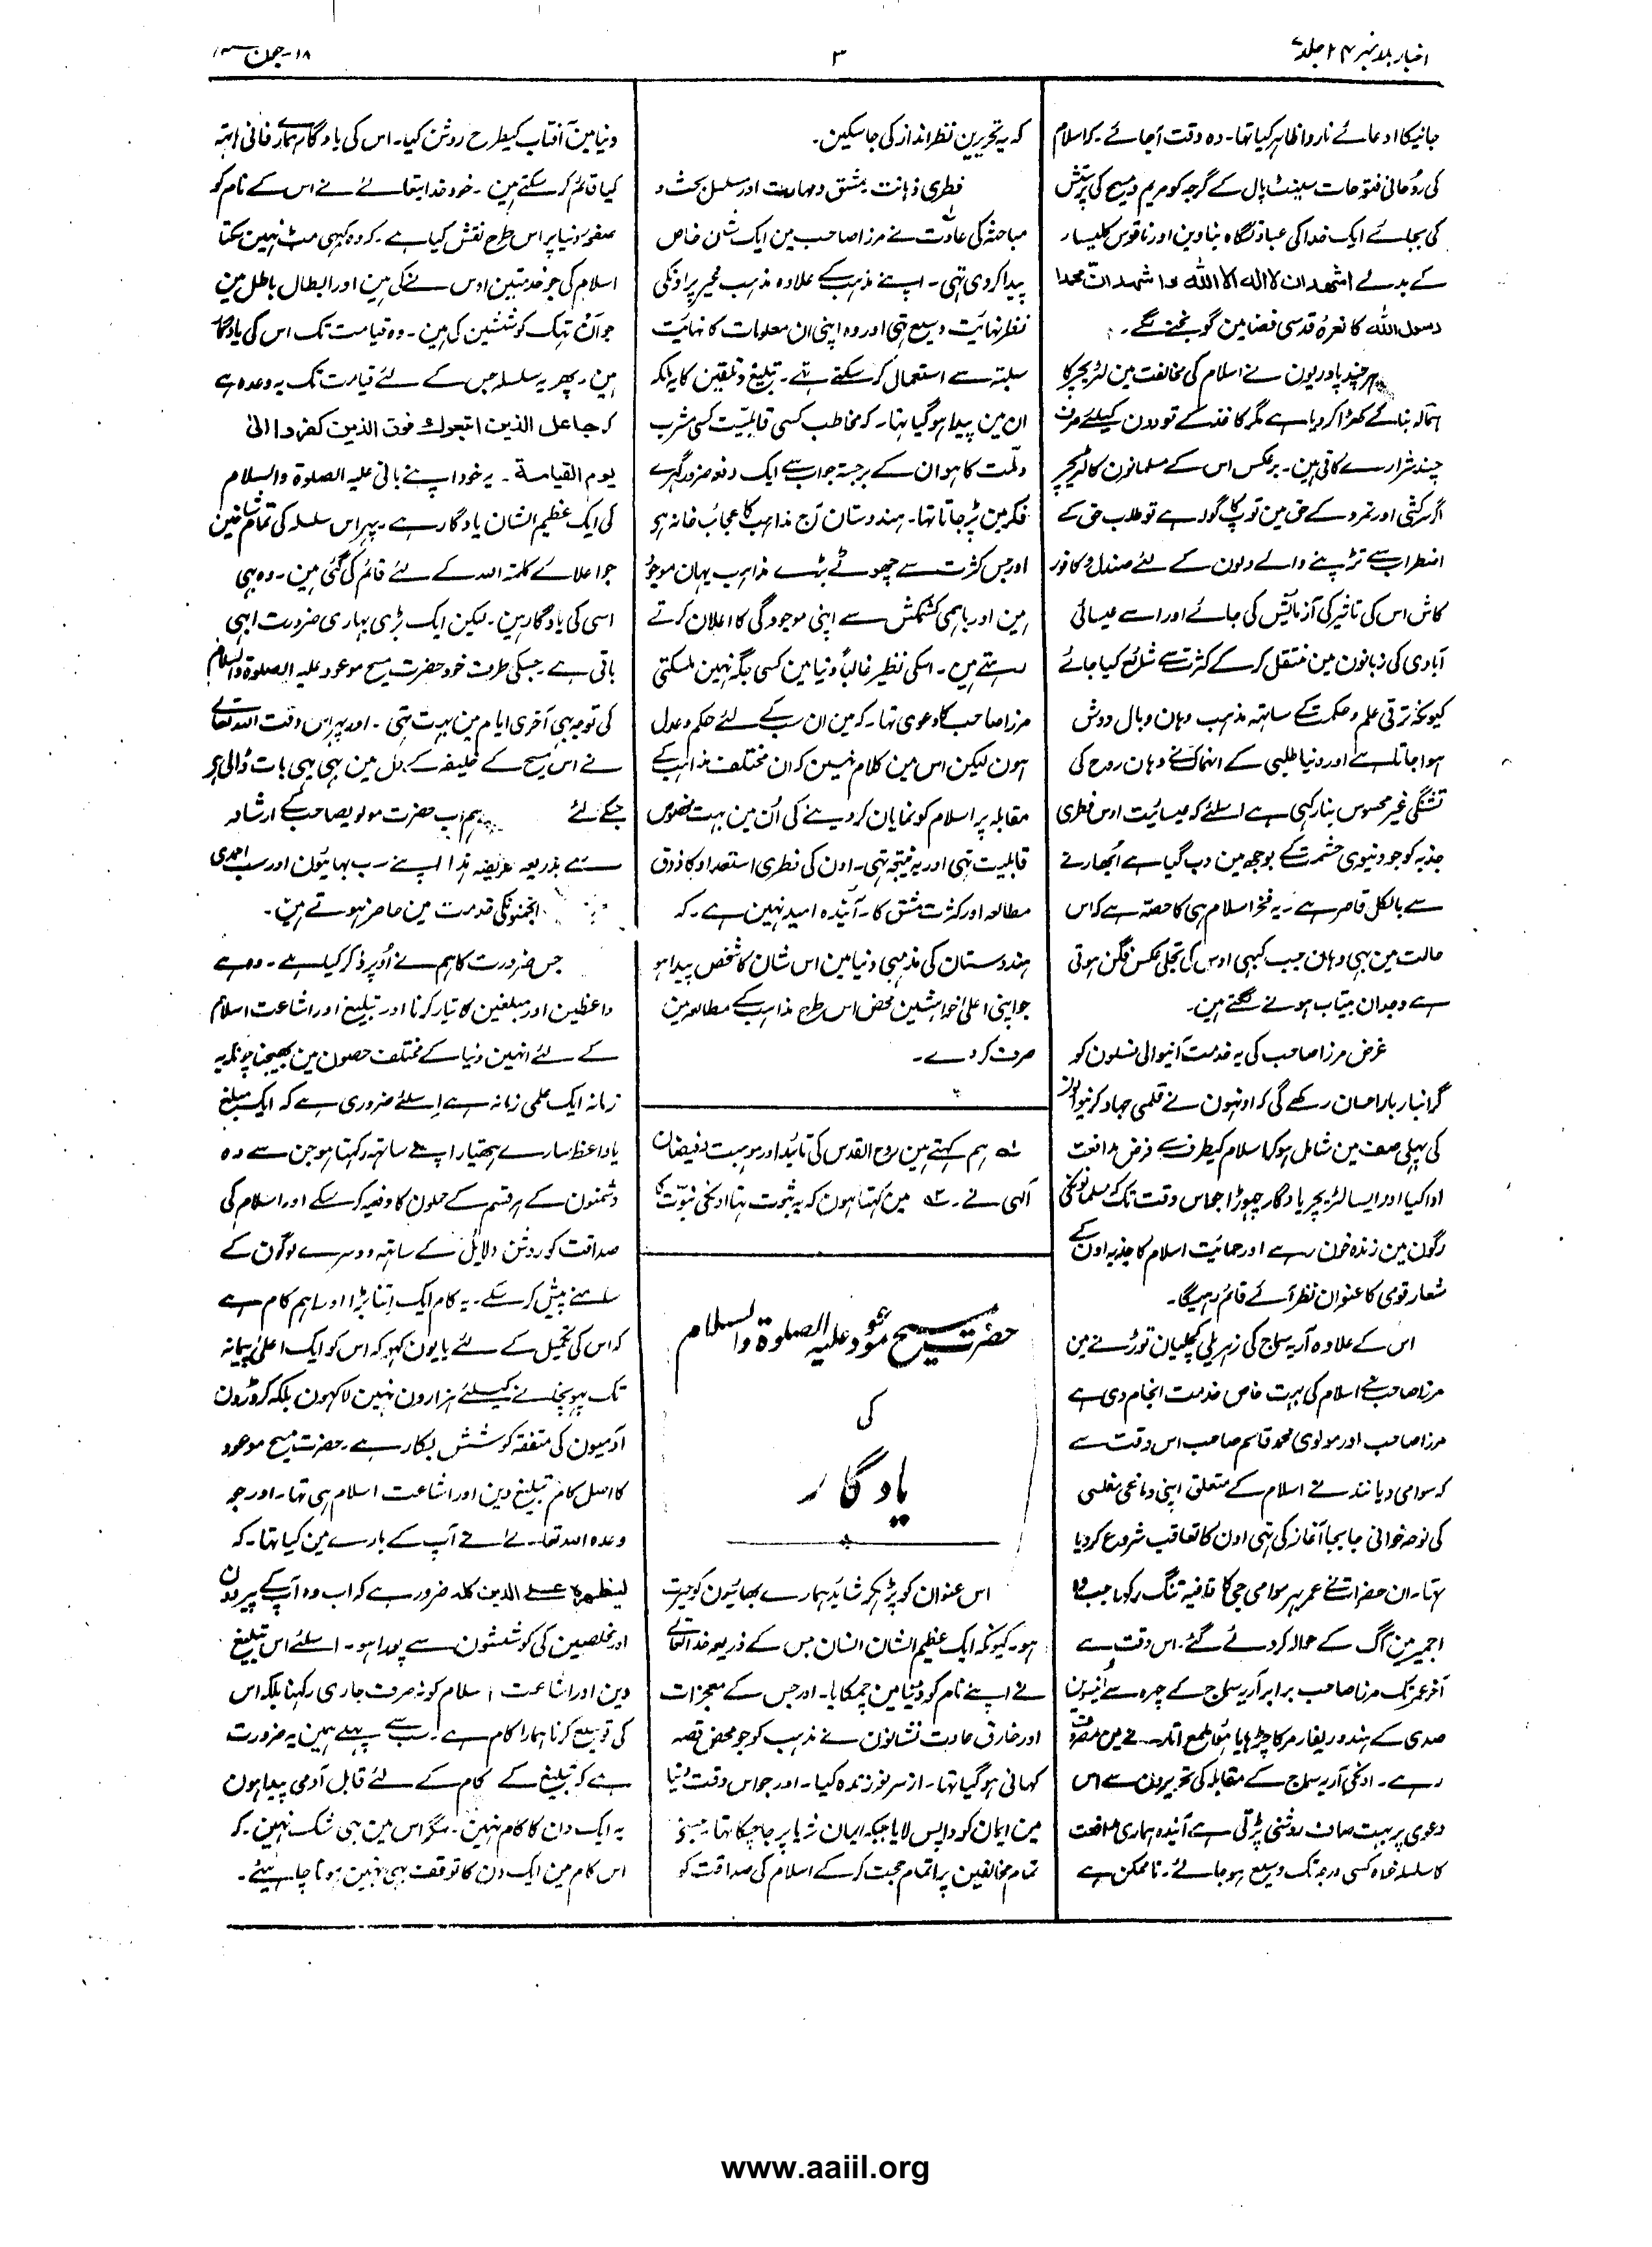 اخبار بدر نمبر ۲۴ جلد ۷
۳
۱۸-جون
جانیکا ادعائے ناروا ظاہر کیا تہا۔ وہ وقت آجائے۔ کہ اسلام
کی روحانی فتوحات سینٹ پال کے گرجہ کو مریم و مسیح کی پرستش
کی بجائے ایک خدا کی عبادتگاہ بنا دین اور ناقوس کلیسا
کے بدلے اشہد ان لا الہ الا اللہ و اشہد ان محمدا
رسول اللہ کا نعرۂ قدسی فضا مین گونجنے لگے۔
ہرچند پادریون نے اسلام کی مخالفت مین لٹریچر کا
ہمالہ بنا کے کھڑا کر دیا ہے مگر کاغذ کے تودون کیلئے صرف
چند شرارے کافی ہین۔ برعکس اس کے مسلمانون کا لٹریچر
اگر سرکشی اور تمرد کے حق مین توپ کا گولہ ہے تو طلب حق کے
اضطراب سے تڑپنے والے دلون کے لئے صندل و کافور
کاش اس کی تاثیر کی آزمائش کی جائے اور اسے عیسائی
آبادی کی زبانون مین منتقل کر کے کثرت سے شائع کیا جائے
کیونکہ ترقی علم و حکمت کے ساتہہ مذہب وہان وبال دوش
ہوا جاتا ہے اور دنیا طلبی کے انہماک نے وہان روح کی
تشنگی غیر محسوس بنا رکہی ہے اسلئے کہ عیسائیت اوس فطری
جذبہ کو جو دنیوی حشمت کے بوجھ مین دب گیا ہے اُبھارنے
سے بالکل قاصر ہے۔ یہ فخر اسلام ہی کا حصہ ہے کہ اس
حالت مین بہی وہان جب کبہی اوس کی تجلی عکس فگن ہوتی
ہے وجدان بیتاب ہونے لگتے ہین۔
غرض مرزا صاحب کی یہ خدمت آنیوالی نسلون کو
گرانبار احسان رکھے گی کہ اونہون نے قلمی جہاد کرنیوالون
کی پہلی صف مین شامل ہو کر اسلام کیطرف سے فرض مدافعت
ادا کیا اور ایسا لٹریچر یادگار چہوڑا جو اس وقت تک کہ مسلمانونکی
رگون مین زندہ خون رہے اور حمایت اسلام کا جذبہ اون کے
شعار قومی کا عنوان نظر آئے قائم رہیگا۔
اس کے علاوہ آریہ سماج کی زہریلی کچلیان توڑنے مین
مرزا صاحب نے اسلام کی بہت خاص خدمت انجام دی ہے
مرزا صاحب اور مولوی محمد قاسم صاحب اس وقت سے
کہ سوامی دیانند نے اسلام کے متعلق اپنی دماغی مفلسی
کی نوحہ خوانی جابجا آغاز کی تہی اون کا تعاقب شروع کر دیا
تہا۔ ان حضرات نے عمر بہر سوامی جی کا قافیہ تنگ رکھا جب وہ
اجمیر مین آگ کے حوالہ کر دئے گئے۔ اس وقت سے
آخر عمر تک مرزا صاحب برابر آریہ سماج کے چہرہ سے اُنیسوین
صدی کے ہندو ریفارمر کا چڑہایا ہوا ملمع اتارنے مین مصروف
رہے۔ اونکی آریہ سماج کے مقابلہ کی تحریرون سے اس
دعوی پر بہت صاف روشنی پڑتی ہے آیندہ ہماری مدافعت
کا سلسلہ خواہ کسی درجہ تک وسیع ہو جائے۔ ناممکن ہے
کہ یہ تحریرین نظر انداز کی جا سکین۔
فطری ذہانت۔ مشق و مہارت اور مسلسل بحث و
مباحثہ کی عادت نے مرزا صاحب مین ایک شان خاص
پیدا کر دی تہی۔ اپنے مذہب کے علاوہ مذہب غیر پر اونکی
نظر نہایت وسیع تہی اور وہ اپنی ان معلومات کا نہایت
سلیقہ سے استعمال کر سکتے تہے۔ تبلیغ و تلقین کا یہ ملکہ
ان مین پیدا ہو گیا تہا۔ کہ مخاطب کسی قابلیت کسی مشرب
و ملت کا ہو ان کے برجستہ جواب سے ایک دفعہ ضرور گہرے
فکر مین پڑ جاتا تہا۔ ہندوستان آج مذاہب کا عجائب خانہ ہے
اور جس کثرت سے چھوٹے بڑے مذاہب یہان موجود
ہین اور باہمی کشمکش سے اپنی موجودگی کا اعلان کرتے
رہتے ہین۔ اسکی نظیر غالباً دنیا مین کسی جگہ نہین ملسکتی
مرزا صاحب کا دعوی تہا۔ کہ مین ان سب کے لئے حکم و عدل
ہون لیکن اس مین کلام نہین کہ ان مختلف مذاہب کے
مقابلہ پر اسلام کو نمایان کر دینے کی اُن مین بہت مخصوص
قابلیت تہی اور یہ نتیجہ تہی۔ اون کی فطری استعداد کا ذوق
مطالعہ اور کثرت مشق کا۔ آیندہ امید نہین ہے۔ کہ
ہندوستان کی مذہبی دنیا مین اس شان کا شخص پیدا ہو
جو اپنی اعلیٰ خواہشین محض اس طرح مذاہب کے مطالعہ مین
صرف کر دے۔
ہم کہتے ہین روح القدس کی تائید اور موہبت و فیضان
الٰہی نے۔ مین کہتا ہون کہ یہ ثبوت تہا اونکی نبوّت کا
حضرت مسیح موعود علیہ الصلوۃ والسلام
کی
یادگار
اس عنوان کو پڑہکر شاید ہمارے بھائیون کو حیرت
ہو۔ کیونکہ ایک عظیم الشان انسان جس کے ذریعہ خدا تعالےٰ
نے اپنے نام کو دنیا مین چمکایا۔ اور جس کے معجزات
اور خارق عادت نشانون نے مذہب کو جو محض قصہ
کہانی ہو گیا تہا۔ از سر نو زندہ کیا۔ اور جو اس وقت دنیا
مین ایمان کو واپس لایا جبکہ ایمان ثریا پر جا چکا تہا
تمام مخالفین پر اتمام حجت کر کے اسلام کی صداقت کو
دنیا مین آفتاب کیطرح روشن کیا۔ اس کی یادگار ہمارے فانی ہاتہہ
کیا قائم کر سکتے ہین۔ خود خدا تعالےٰ نے اس کے نام کو
صفحۂ دنیا پر اس طرح نقش کیا ہے۔ کہ وہ کبہی مٹ نہین سکتا
اسلام کی جو خدمتین اوس نے کی ہین اور ابطال باطل مین
جو اَن تہک کوششین کی ہین۔ وہ قیامت تک اس کی یادگار
ہین۔ پھر یہ سلسلہ جس کے لئے قیامت تک یہ وعدہ ہے
کہ جاعل الذین اتبعوک فوق الذین کفروا الی
یوم القیامۃ۔ یہ خود اپنے بانی علیہ الصلوۃ والسلام
کی ایک عظیم الشان یادگار ہے۔ پہر اس سلسلہ کی تمام شاخین
جو اعلائے کلمۃ اللہ کے لئے قائم کی گئی ہین۔ وہ بہی
اسی کی یادگار ہین۔ لیکن ایک بڑی بہاری ضرورت ابہی
باقی ہے۔ جسکی طرف خود حضرت مسیح موعود علیہ الصلوۃ والسلام
کی توجہ بہی آخری ایام مین بہت تہی۔ اور پہر اس وقت اللہ تعالےٰ
نے اس مسیح کے خلیفہ کے دل مین بہی یہی بات ڈالی ہے
جسکے لئے ہم اب حضرت مولویصاحب کے ارشاد
سے بذریعہ عریضہ ہذا اپنے سب بہائیون اور سب احمدی
انجمنونکی خدمت مین حاضر ہوتے ہین۔
جس ضرورت کا ہم نے اُوپر ذکر کیا ہے۔ وہ ہے
واعظین اور مبلغین کا تیار کرنا اور تبلیغ اور اشاعت اسلام
کے لئے انہین دنیا کے مختلف حصون مین بھیجنا چونکہ یہ
زمانہ ایک علمی زمانہ ہے اِسلئے ضروری ہے کہ ایک مبلغ
یا واعظ سارے ہتھیار اپنے ساتہہ رکہتا ہو جن سے وہ
دشمنون کے ہر قسم کے حملون کا دفعیہ کر سکے اور اسلام کی
صداقت کو روشن دلایل کے ساتہہ دوسرے لوگون کے
سامنے پیش کر سکے۔ یہ کام ایک اِتنا بڑا اور اہم کام ہے
کہ اس کی تکمیل کے لئے یا یون کہو کہ اس کو ایک اعلیٰ پیمانہ
تک پہونچانے کیلئے ہزارون نہین لاکہون بلکہ کروڑون
آدمیون کی متفقہ کوشش بکار ہے۔ حضرت مسیح موعود
کا اصل کام تبلیغ دین اور اشاعت اسلام ہی تہا۔ اور جو
وعدہ اللہ تعالےٰ نے آپ کے بارے مین کیا تہا۔ کہ
لیظہرہ علے الدین کلہ ضرور ہے کہ اب وہ آپ کے پیرون
اور مخلصین کی کوششون سے پورا ہو۔ اسلئے اس تبلیغ
دین اور اشاعت اسلام کو نہ صرف جاری رکہنا بلکہ اس
کی توسیع کرنا ہمارا کام ہے۔ سب سے پہلے ہمین یہ ضرورت
ہے کہ تبلیغ کے کام کے لئے قابل آدمی پیدا ہون
یہ ایک دن کا کام نہین۔ مگر اس مین بہی شک نہین۔ کہ
اس کام مین ایک دن کا توقف بہی نہین ہونا چاہیئے۔
www.aaiil.org